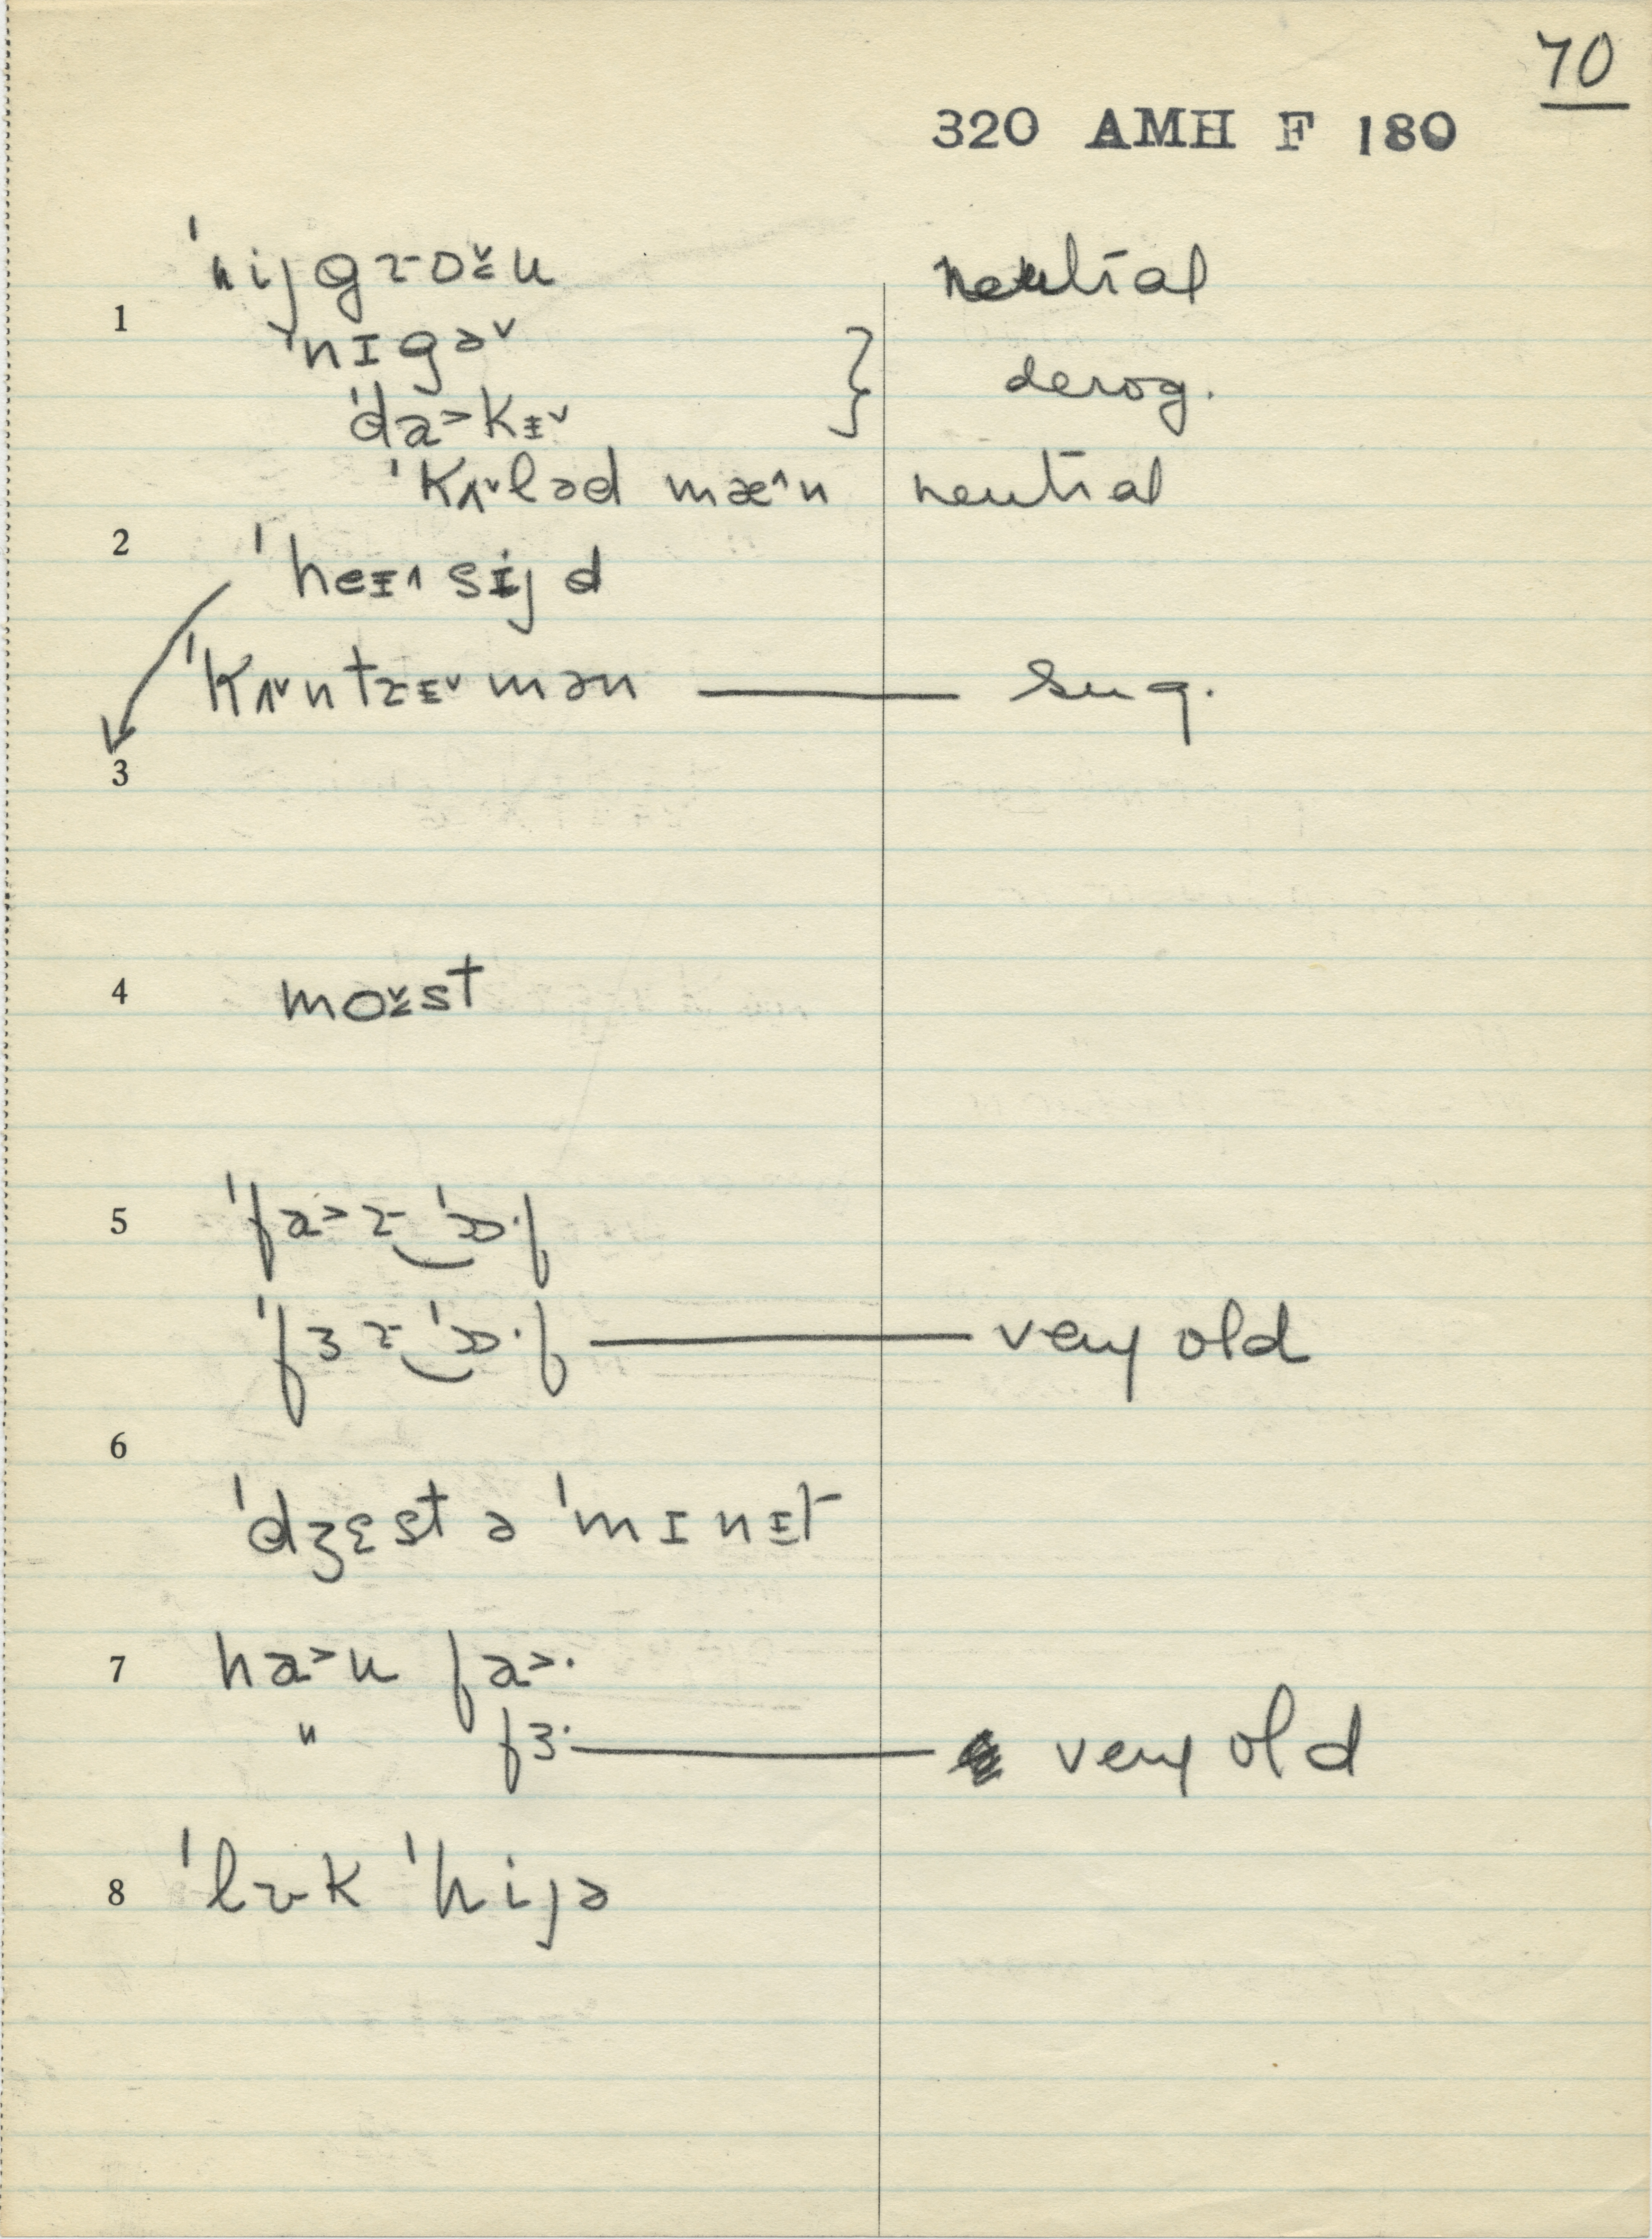 70
320 AMH F 180
ˈnijgɹoᵾ̌u neutral
1
ˈnɪgə˅ } derog.
ˈda˃kɪ̵˅
ˈkʌ˅ləd mæ˄n neutral
2
ˈheɪ̵˄sijd
ˈkʌ˅ntɹɪ̵˅mən — sug.
3
4
moᵾ̌st
5
ˈfa˃ɹ‿ˈɒ·f
ˈfɜɹ‿ˈɒ·f — very old
6
ˈdʒɛst ə ˈmɪnɪ̵t
7 ha˃u fa˃·
" fɜ· — very old
8 ˈlʊk ˈhijə